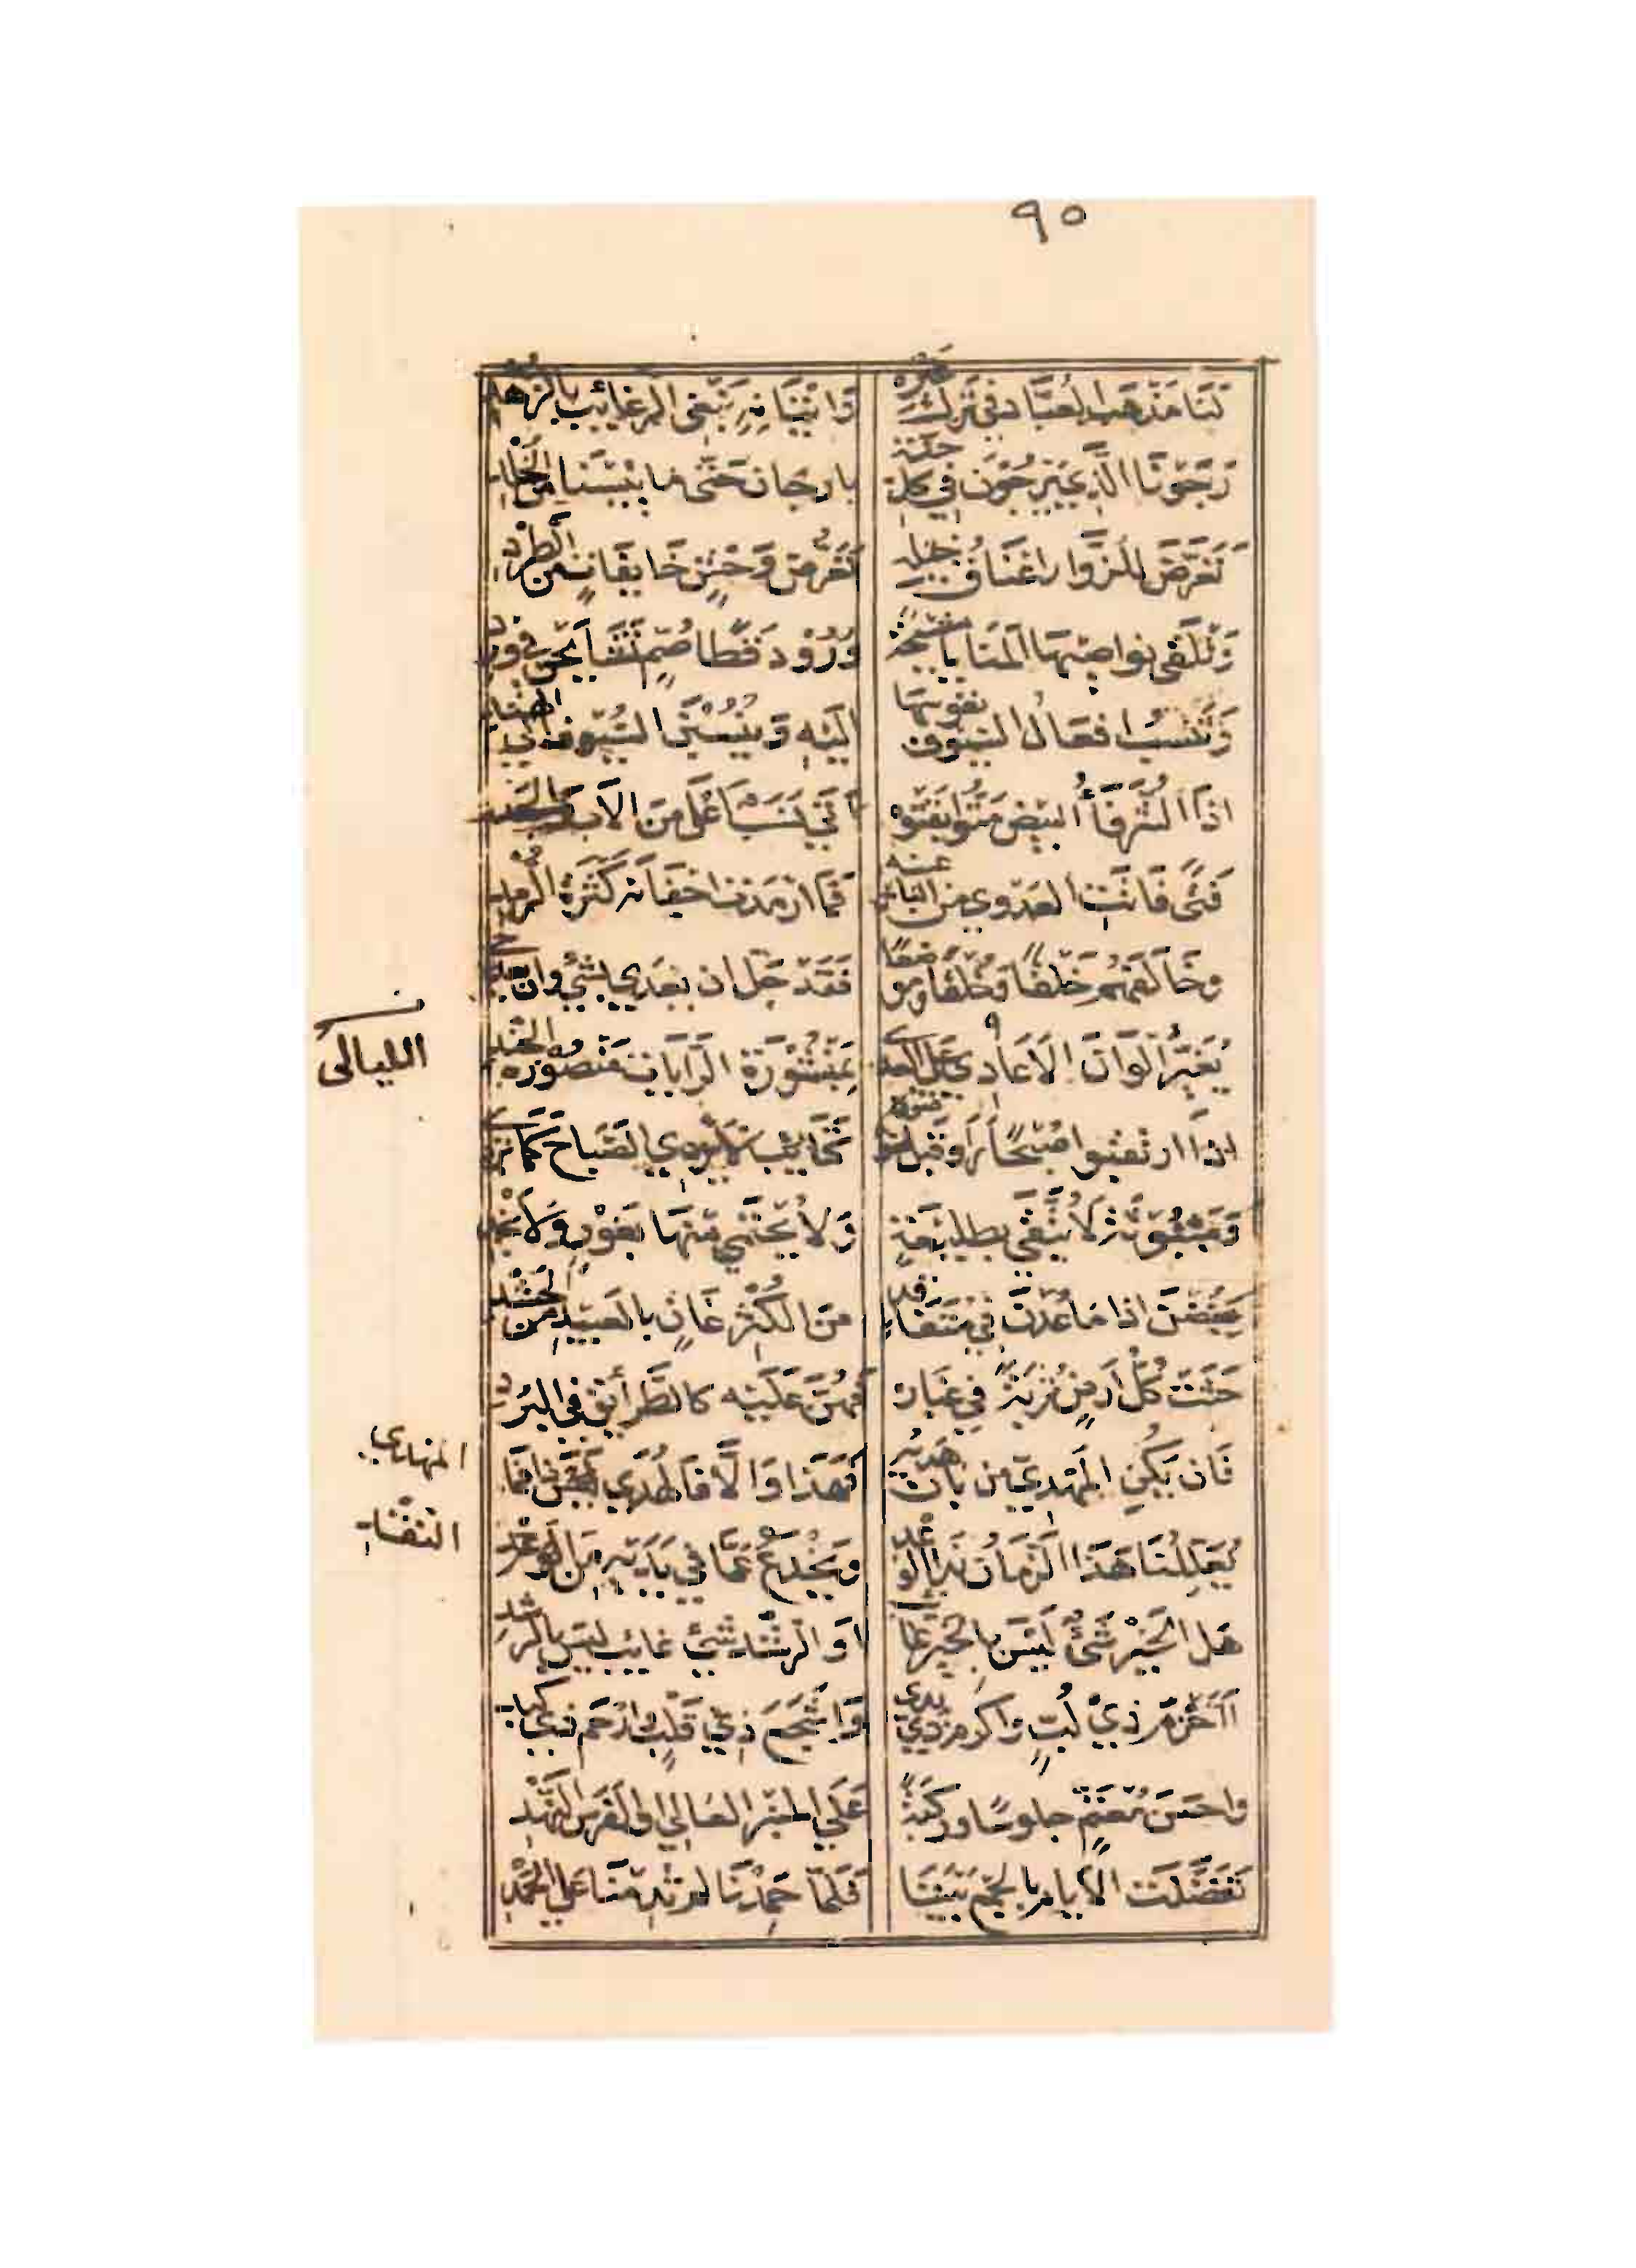 ٩٥
لنا مذهب العباد في ترك غيره واتيانه نبغي الرغائب بالزهد
رجونا الذي يرجون في كل جنة بارجان حتى ما يئسنا من الخلد
تعرض للزوار اعناق خيله تعرض وحش خايفات من الطرد
وتلقى نواصيها المنايا مشيحة ورود قطا صم تشايحن في ورد
وتنسب افعال السيوف نفوسها اليه وينسبن السيوف الى الهند
اذا الشرفاء البيض متوا بقتوه اتى نسب اعلى من الاب والجد
فتى فاتت العدوى من الناس عينه فما ارمدت اجفانه كثرة الرمد
وخالفهم خلقا وخلقا وموضعا فقد جل ان يعدى بشئ وان يعدي
يغير الوان الليالي على العدى بمنشورة الرايات منصورة الجند
الليالى
اذا ارتقبوا صبحا راوا قبل ضوئه كتائب لا يردي الصباح كما تردي
ومبثوثة لا تتقى بطليعة ولا يحتمى منها بغور ولا نجد
يغضن اذا ما عدن في متفاقد من الكثر غان بالعبيد من الحشد
حثت كل ارض تربة في غباره فهن عليه كالطرائق في البرد
فان يكن المهدي من بان هديه فهذا والا فالهدى ذا فما
المهدي
يعللنا هذا الزمان بذا الوعد ويخدع عما في يديه من النقد
النقد
هل الخير شئ ليس بالخير غائب او الرشد شئ غايب ليس بالرشد
أأحزم ذي لب واكرم ذي يد واشجع ذي قلب وارحم ذي كبد
واحسن معتم جلوسا وركبة على المنبر العالي او الفرس النهد
تفضلت الايام بالجمع بيننا فلما حمدنا لم تدمنا على الحمد